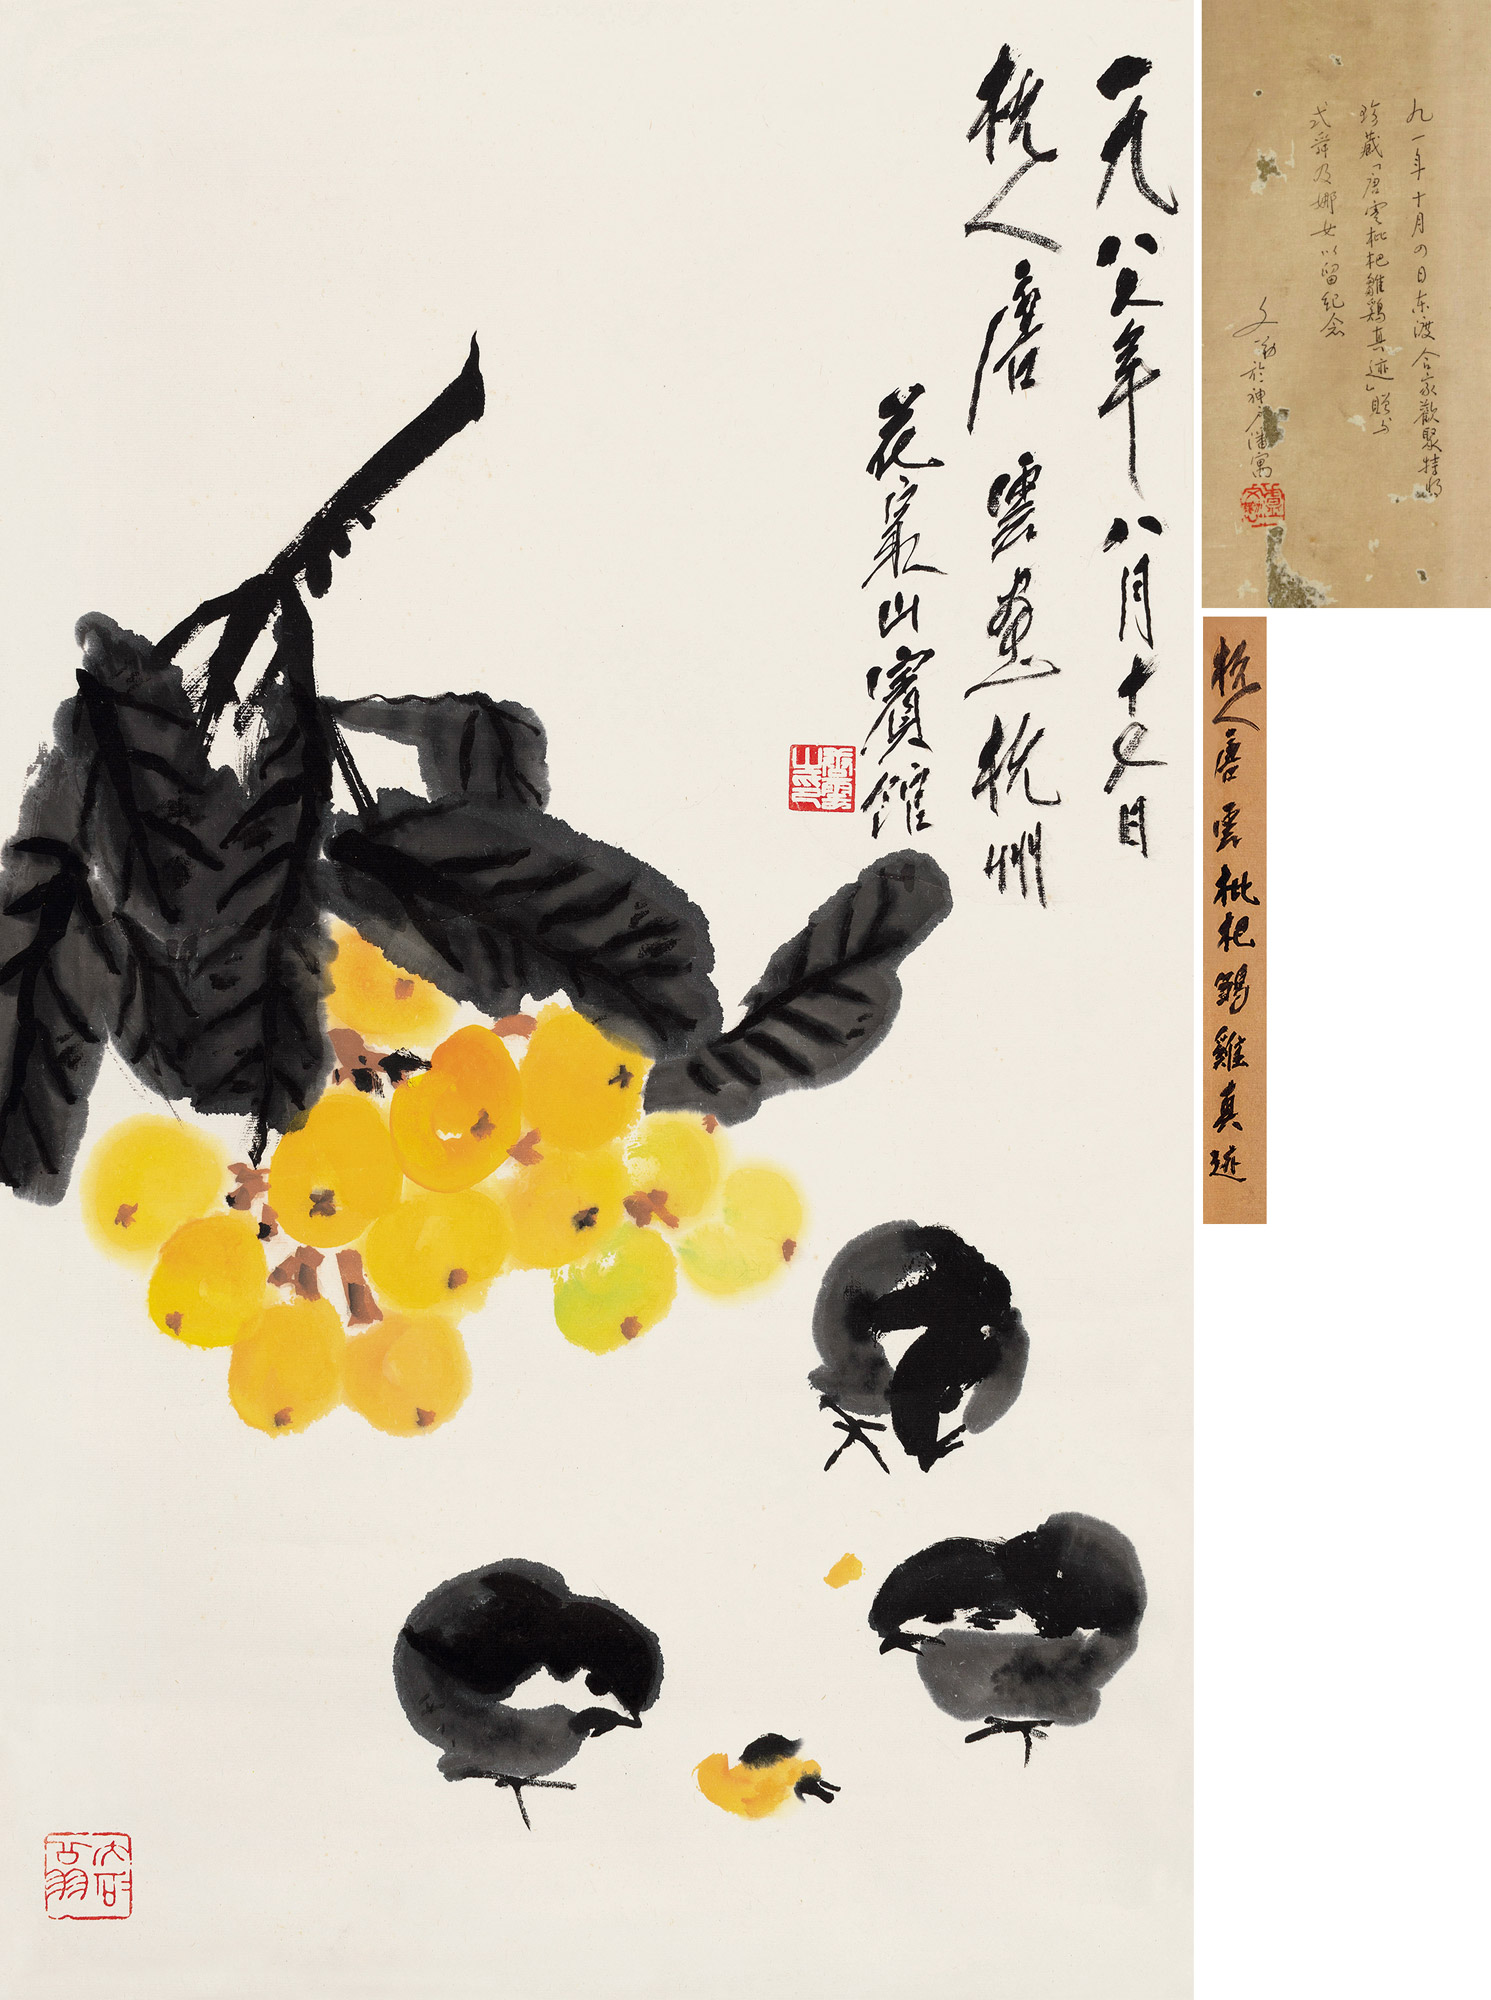 一九八又年八月十又日
杭人唐雲畫杭州
花家山賓館
九一年十月四日东渡合家歡聚特将
珍藏「唐雲枇杷雛鷄真迹」贈与
式舜及娜女以留紀念
文勋於神户潘寓
杭人唐雲枇杷鷄雛真迹